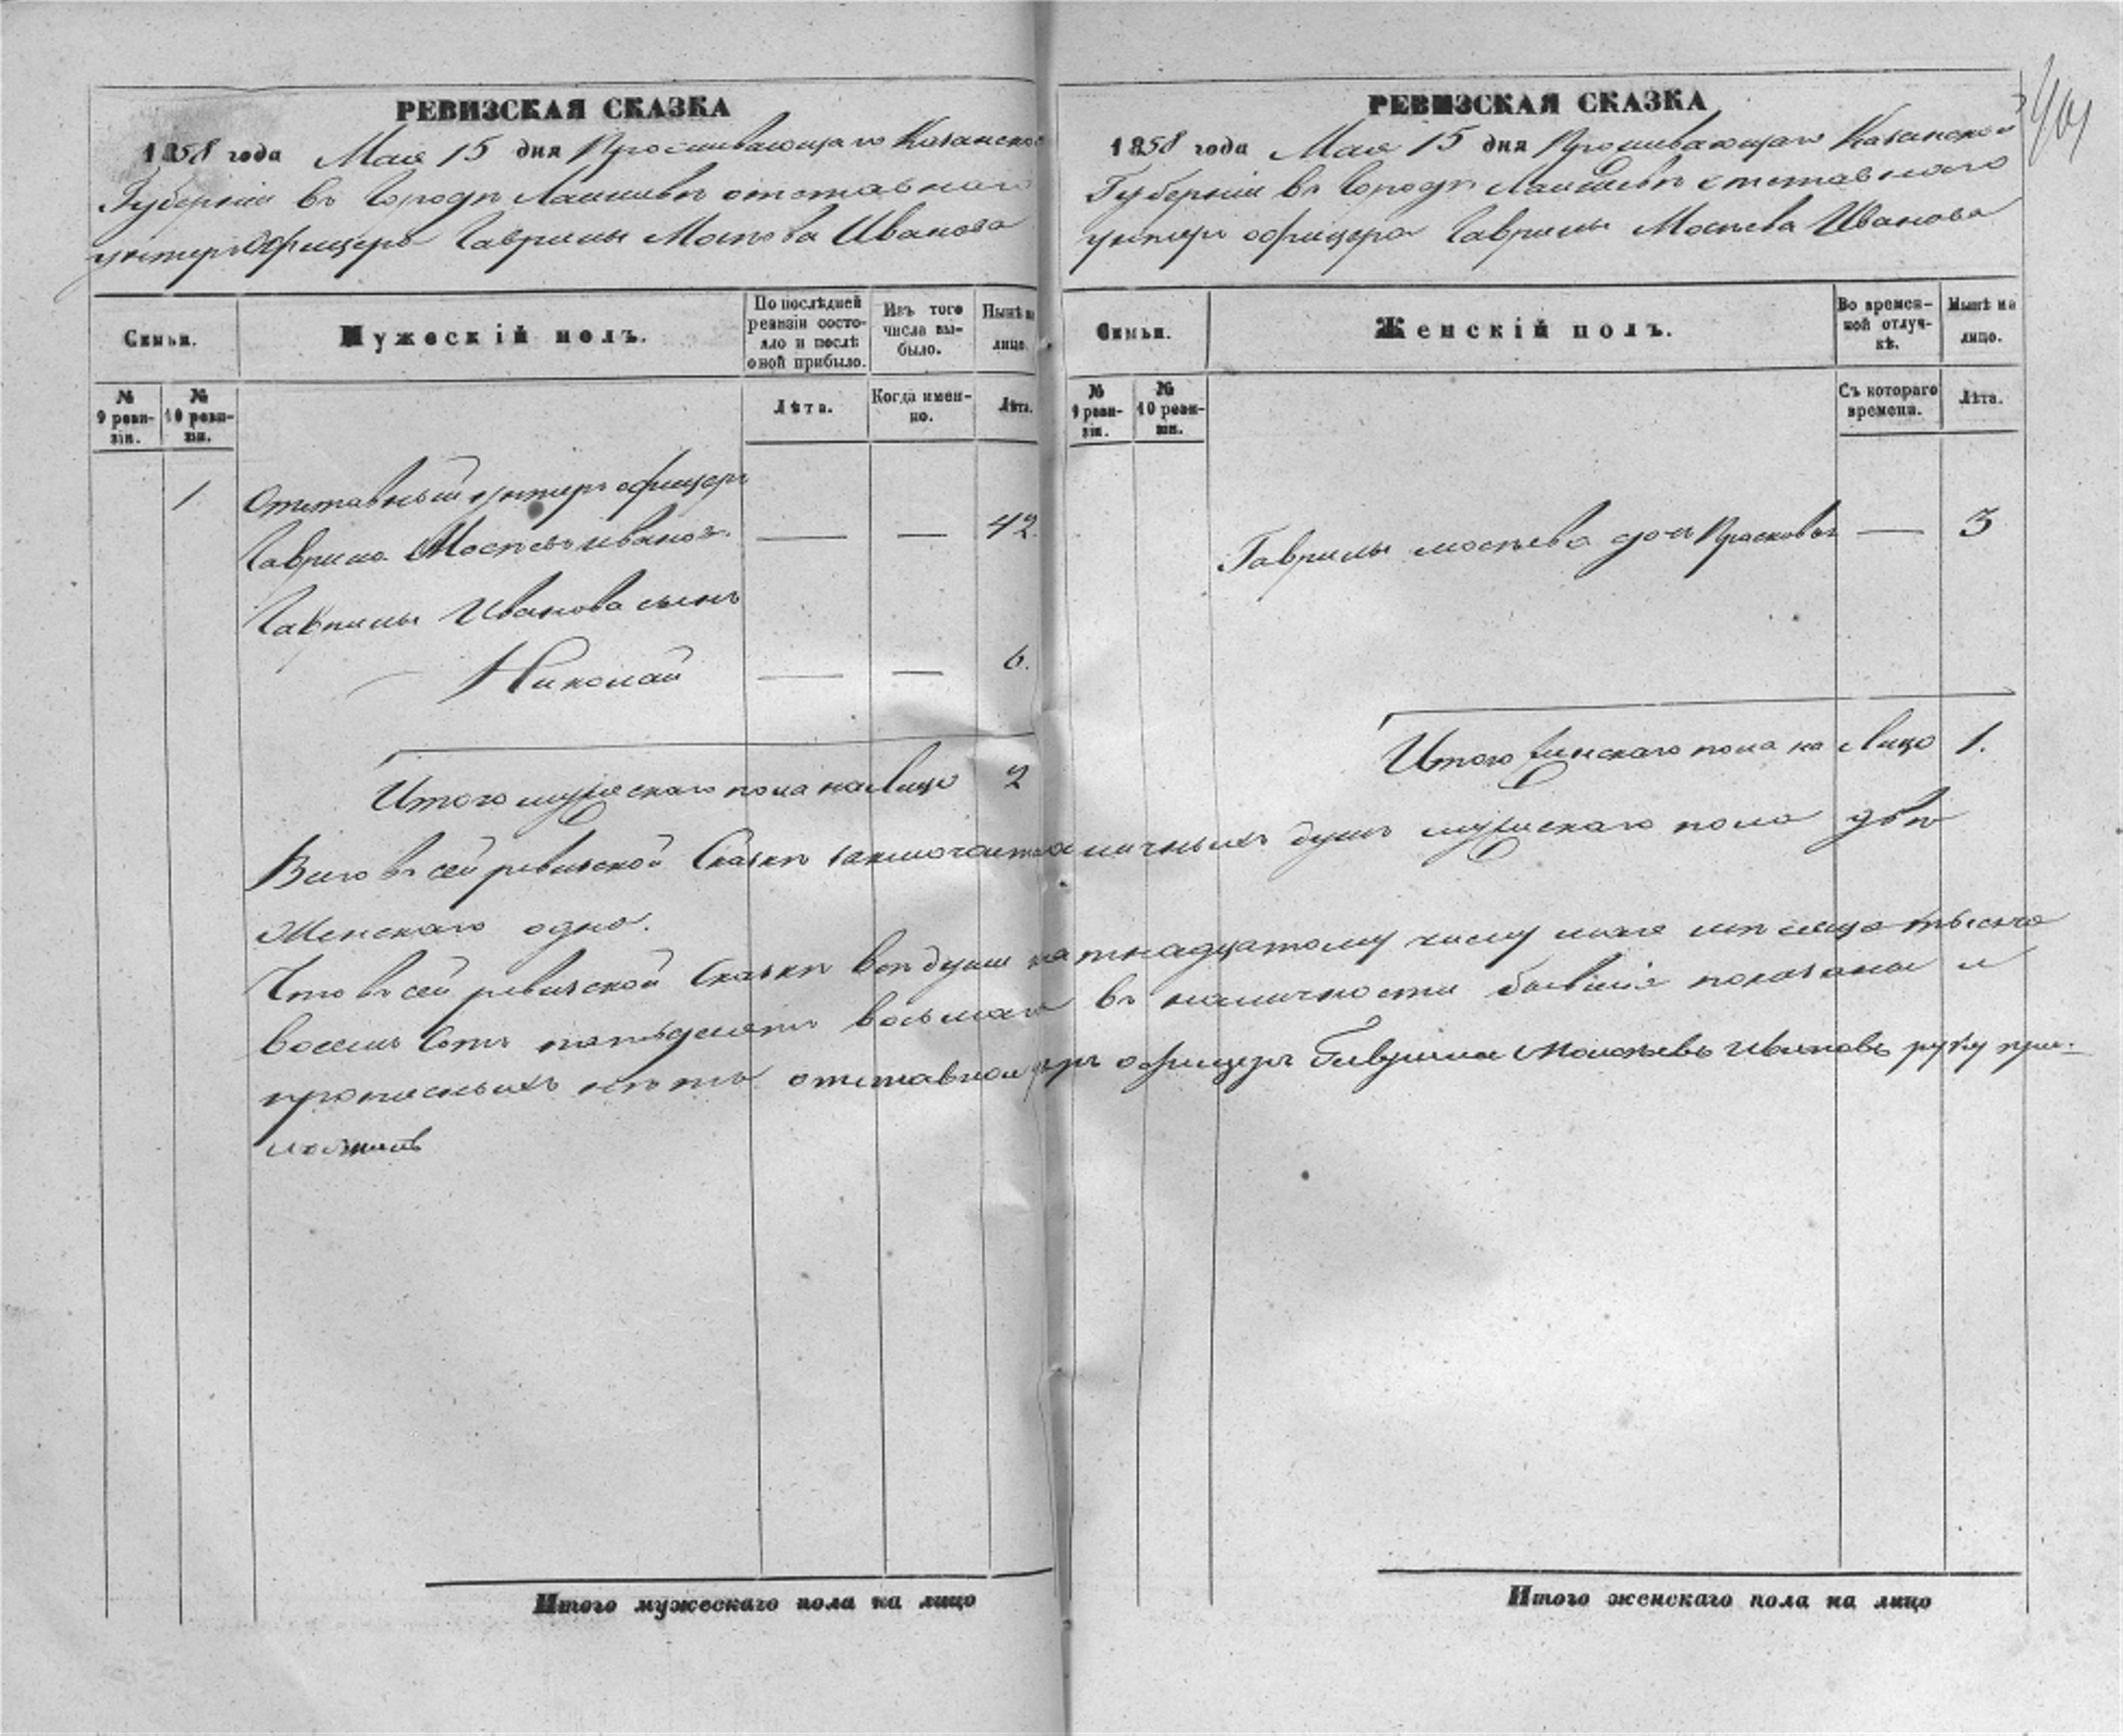 РЕВИЗСКАЯ СКАЗКА
1858 года Мая 15 дня Проживающаго Казанской
Губерніи въ Городѣ Лаишевѣ отставнаго
унтеръ офицера Гаврилы Мосѣева Иванова
Семьи.
Мужескій полъ.
По послѣдней ревизіи состояло и послѣ оной прибыло.
Изъ того числа выбыло.
Нынѣ на лицо.
№ 9 ревизіи.
№ 10 ревизіи.
Лѣта.
Когда именно.
Лѣта.
1. Отставный унтеръ офицеръ
Гаврила Мосѣевъ Ивановъ. — — 42
Гаврилы Иванова сынъ
Николай — — 6.
Итого мужескаго пола на Лицо 2
РЕВИЗСКАЯ СКАЗКА
1858 года Мая 15 дня Проживающаго Казанской
Губерніи въ Городѣ Лаишевѣ отставнаго
унтеръ офицера Гаврилы Мосѣева Иванова
Семьи.
Женскій полъ.
Во временной отлучкѣ.
Нынѣ на лицо.
№ 9 ревизіи.
№ 10 ревизіи.
Съ котораго времени.
Лѣта.
Гаврилы Мосѣева дочь Прасковья — 3
Итого женскаго пола на Лицо 1.
Всего въ сей ревизской Сказкѣ заключается наличныхъ душъ мужескаго пола двѣ
Женскаго одно.
Что въ сей ревизской Сказкѣ всѣ души пятнадцатому числу мая мѣсяца тысяча
восемь сотъ пятьдесятъ восьмаго въ наличности бывшіе показаны и
прописныхъ нѣтъ отставной унтеръ офицеръ Гаврила Мосѣевъ Ивановъ руку при-
ложилъ
Итого мужескаго пола на лицо
Итого женскаго пола на лицо